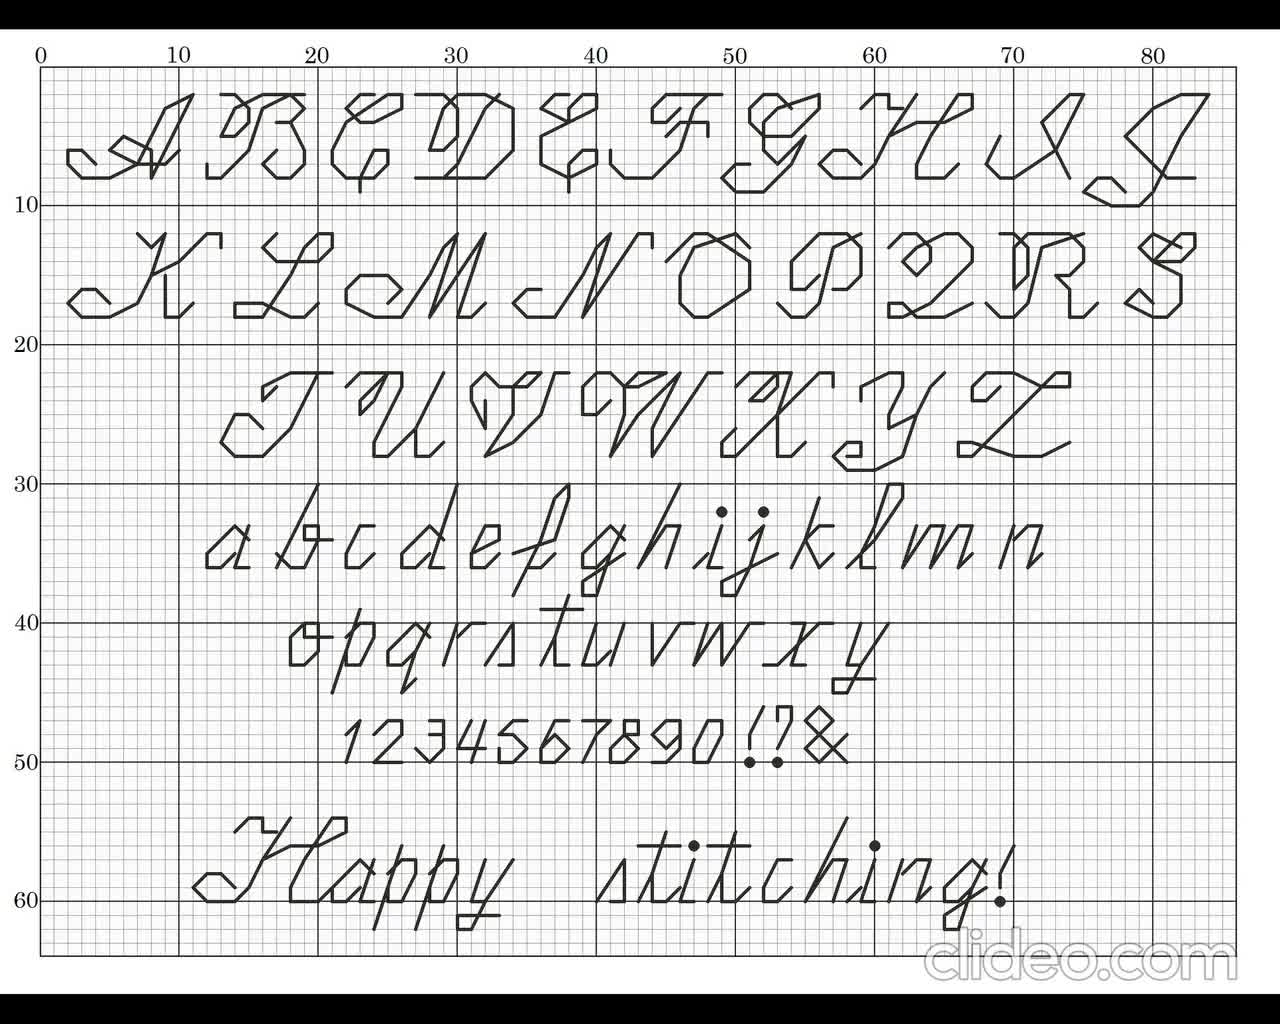 0 10 20 30 40 50 60 70 80
A B C D E F G H I J
10
K L M N O P Q R S
20
T U V W X Y Z
30
a b c d e f g h i j k l m n
40
o p q r s t u v w x y
1 2 3 4 5 6 7 8 9 0 ! ? &
50
Happy stitching!
60
clideo.com